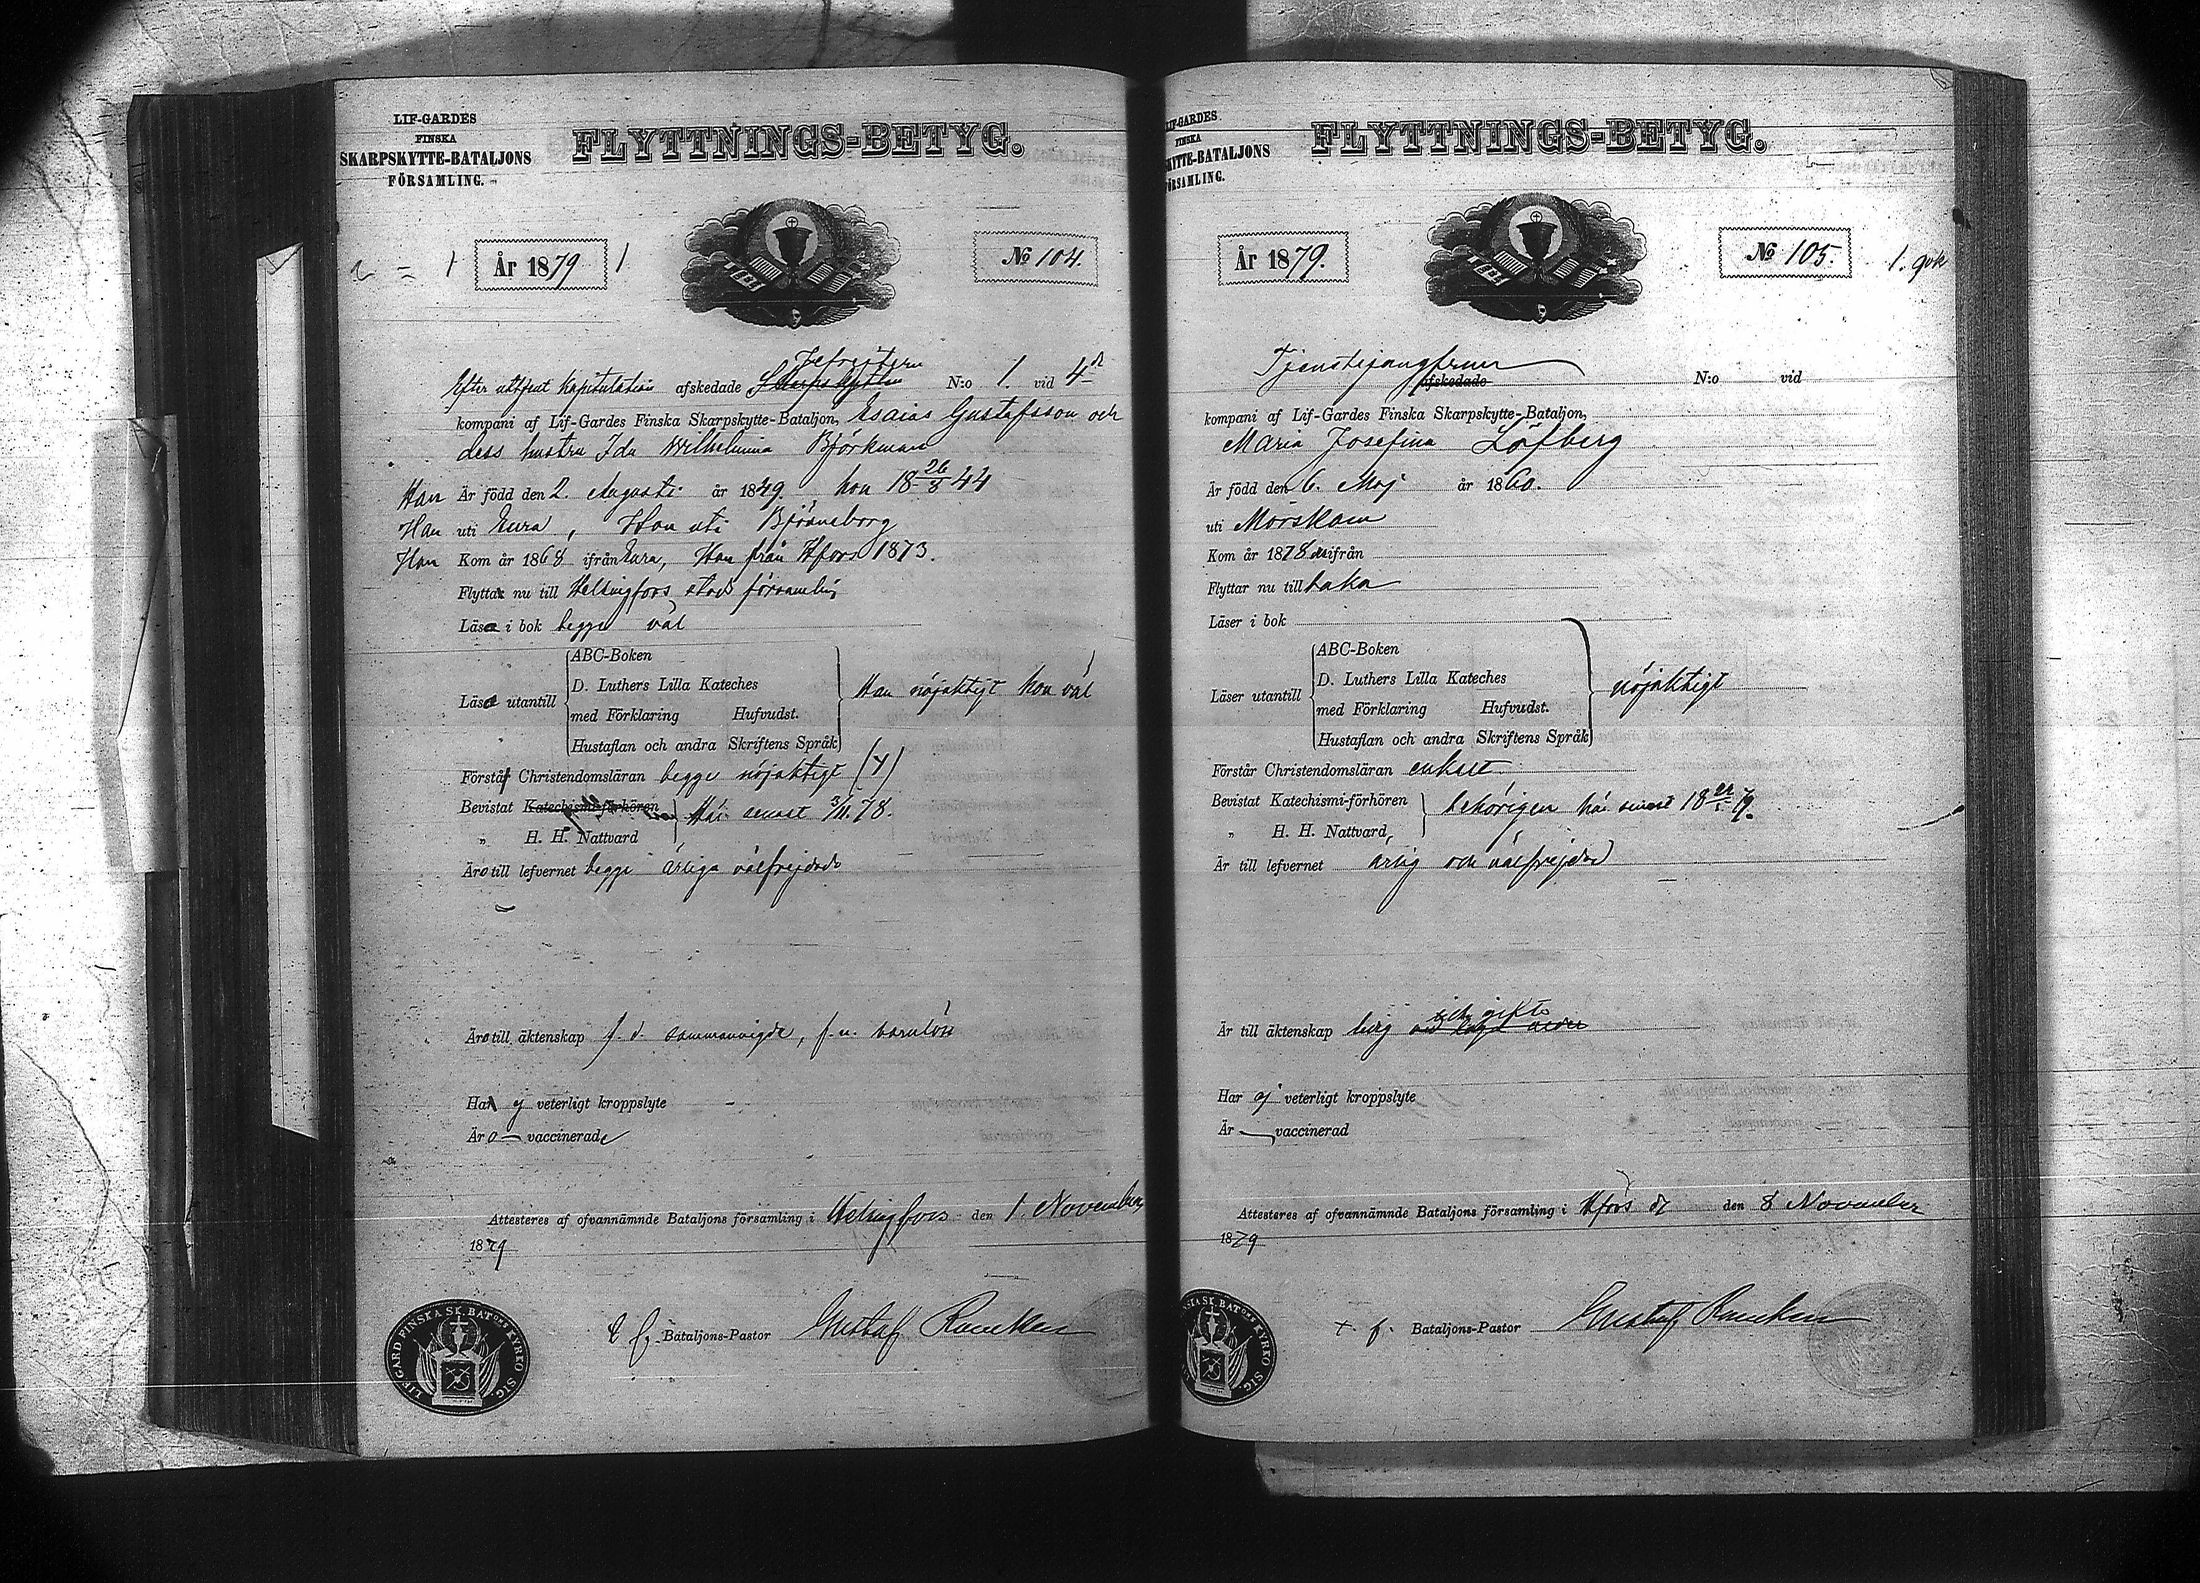 LIF-GARDES
FINSKA
SKARPSKYTTE-BATALJONS
FÖRSAMLING.
FLYTTNINGS-BETYG.
1 År 1879 1
№ 104.
Efter uttjent kapitulation afskedade Skarpskytten N:o 1. vid 4
kompani af Lif-Gardes Finska Skarpskytte-Bataljon, Esaias Gustafsson och
dess hustru Ida Wilhelmina Björkman
Han Är född den 2. Augusti år 1849, hon 18 26/8 44
Han uti Eura, Hon uti Björneborg
Han Kom år 1868 ifrån Eura, Hon från Hfors 1873.
Flytta nu till Helsingfors stads församling
Läsa i bok begge väl
ABC-Boken
D. Luthers Lilla Kateches
Läsa utantill Han nöjaktigt hon väl
med Förklaring Hufvudst.
Hustaflan och andra Skriftens Språk
Förstå Christendomsläran begge nöjaktigt
Bevistat Katechismi-förhören här senast 3/11.78.
„ H. H. Nattvard
Äro till lefvernet begge ärliga välfrejdade
Äro till äktenskap f. d. sammanvigde, f. n. barnlösa
Ha ej veterligt kroppslyte
Äro — vaccinerade
Attesteres af ofvannämnde Bataljons församling i Helsingfors den 1. November
1879
t. f. Bataljons-Pastor Gustaf Rancken
LIF.GARD FINSKA SK. BAT:ONS KYRKO SIG.
LIF-GARDES
FINSKA
SKYTTE-BATALJONS
FÖRSAMLING.
FLYTTNINGS-BETYG.
År 1879.
№ 105. 1. qvk
Tjenstejungfrun afskedade N:o vid
kompani af Lif-Gardes Finska Skarpskytte-Bataljon,
Maria Josefina Löfberg
Är född den 6. Maj år 1860.
uti Mörskom
Kom år 1878 derifrån
Flyttar nu till baka
Läser i bok
ABC-Boken
D. Luthers Lilla Kateches
Läser utantill nöjaktigt
med Förklaring Hufvudst.
Hustaflan och andra Skriftens Språk
Förstår Christendomsläran enkelt
Bevistat Katechismi-förhören behörigen här senast 18 79.
„ H. H. Nattvard
Är till lefvernet ärlig och välfrejdad
Är till äktenskap ledig och gifto
Har ej veterligt kroppslyte
Är — vaccinerad
Attesteres af ofvannämnde Bataljons församling i Hfors den 8 November
1879
t. f. Bataljons-Pastor Gustaf Rancken
FINSKA SK. BAT:ONS KYRKO SIG.